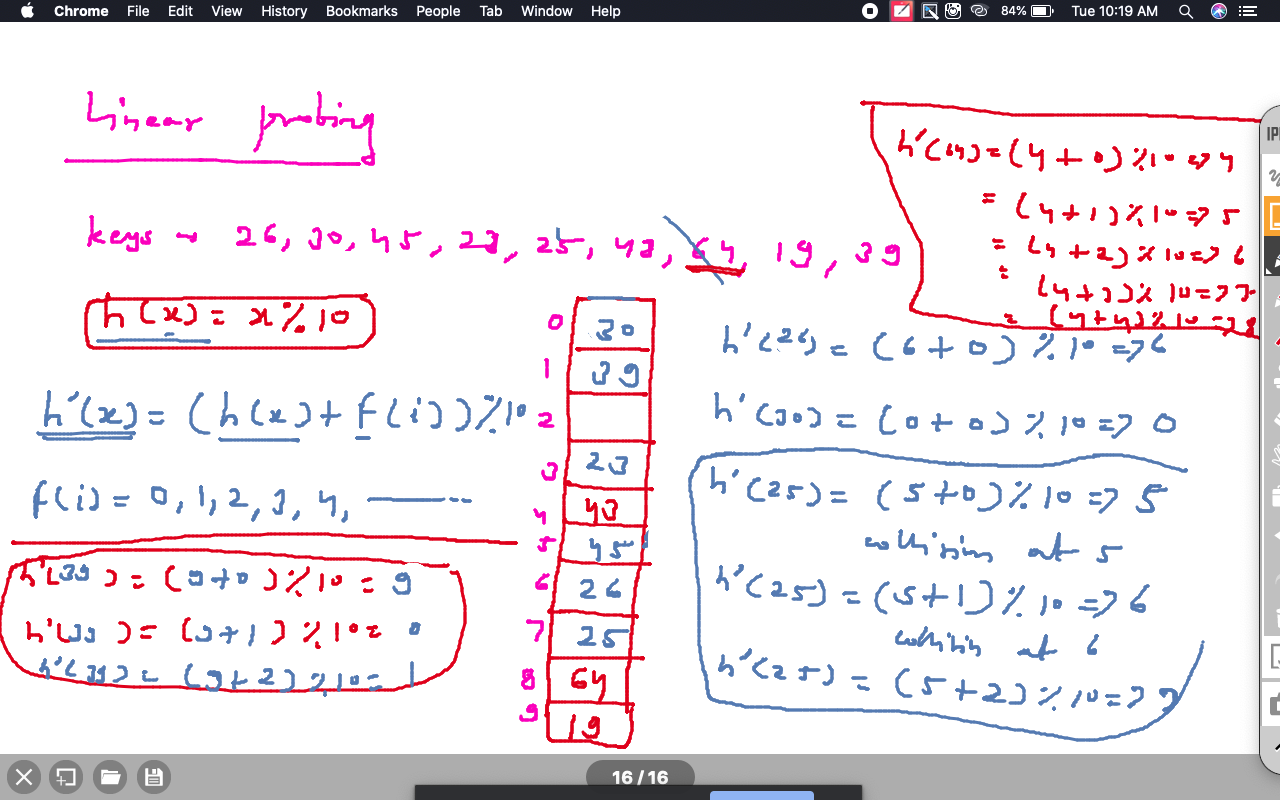 Chrome File Edit View History Bookmarks People Tab Window Help 84% Tue 10:19 AM
Linear probing
keys → 26, 30, 45, 23, 25, 43, 64, 19, 39
h(x) = x%10
h'(x) = (h(x) + f(i))%10
f(i) = 0, 1, 2, 3, 4, ———---
h'(39) = (9+0)%10 = 9
h'(39) = (9+1)%10 = 0
h'(39) = (9+2)%10 = 1
0 30
1 39
2
3 23
4 43
5 45
6 26
7 25
8 64
9 19
h'(64) = (4+0)%10 => 4
= (4+1)%10 => 5
= (4+2)%10 => 6
= (4+3)%10 => 7
= (4+4)%10 => 8
h'(26) = (6+0)%10 => 6
h'(30) = (0+0)%10 => 0
h'(25) = (5+0)%10 => 5
collision at 5
h'(25) = (5+1)%10 => 6
collision at 6
h'(25) = (5+2)%10 => 7
16 / 16